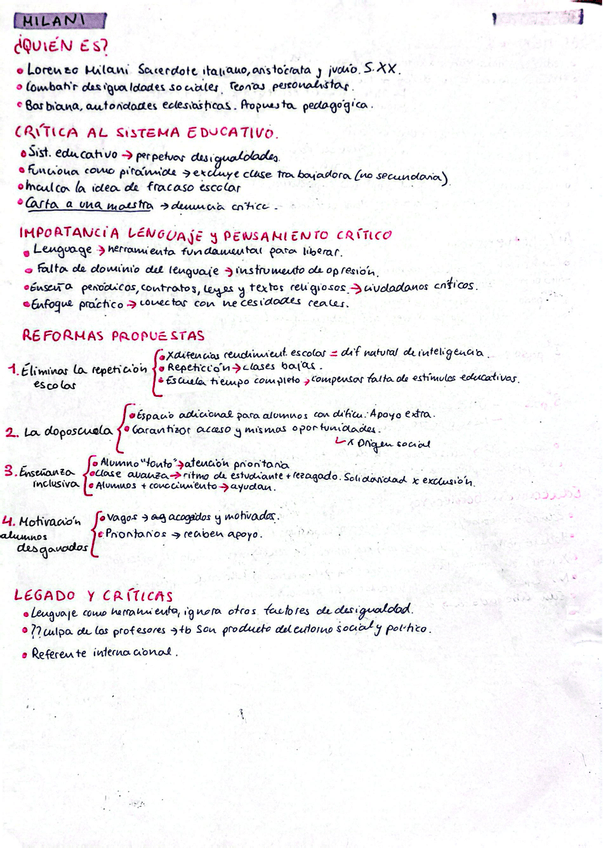 MILANI
¿QUIÉN ES?
• Lorenzo Milani Sacerdote italiano, aristócrata y judío. S.XX.
• Combatir desigualdades sociales. Teorías personalistas.
• Barbiana, autoridades eclesiásticas. Propuesta pedagógica.
CRÍTICA AL SISTEMA EDUCATIVO.
• Sist. educativo → perpetuar desigualdades.
• Funciona como pirámide → excluye clase trabajadora (no secundaria)
• Inculca la idea de fracaso escolar
• Carta a una maestra → denuncia crítica.
IMPORTANCIA LENGUAJE y PENSAMIENTO CRÍTICO
• Lenguage → herramienta fundamental para liberar.
• Falta de dominio del lenguaje → instrumento de opresión.
• Enseña periódicos, contratos, leyes y textos religiosos. → ciudadanos críticos.
• Enfoque práctico → conectar con necesidades reales.
REFORMAS PROPUESTAS
1. Eliminar la repetición escolas
• X diferencias rendimient. escolas = dif natural de inteligencia.
• Repetición → clases bajas.
• Escuela tiempo completo → compensar falta de estímulos educativas.
2. La doposcuela
• Espacio adicional para alumnos con dificu. Apoyo extra.
• Garantizar acceso y mismas oportunidades.
↳ X Origen social
3. Enseñanza inclusiva
• Alumno "tonto" → atención prioritaria
• Clase avanza → ritmo de estudiante + rezagado. Solidaridad X exclusión.
• Alumnos + conocimiento → ayudan.
4. Motivación alumnos desganados
• Vagos → acogidos y motivados.
• Prioritarios → reciben apoyo.
LEGADO Y CRÍTICAS
• Lenguaje como herramienta, ignora otros factores de desigualdad.
• ?? culpa de los profesores → tb son producto del entorno social y político.
• Referente internacional.